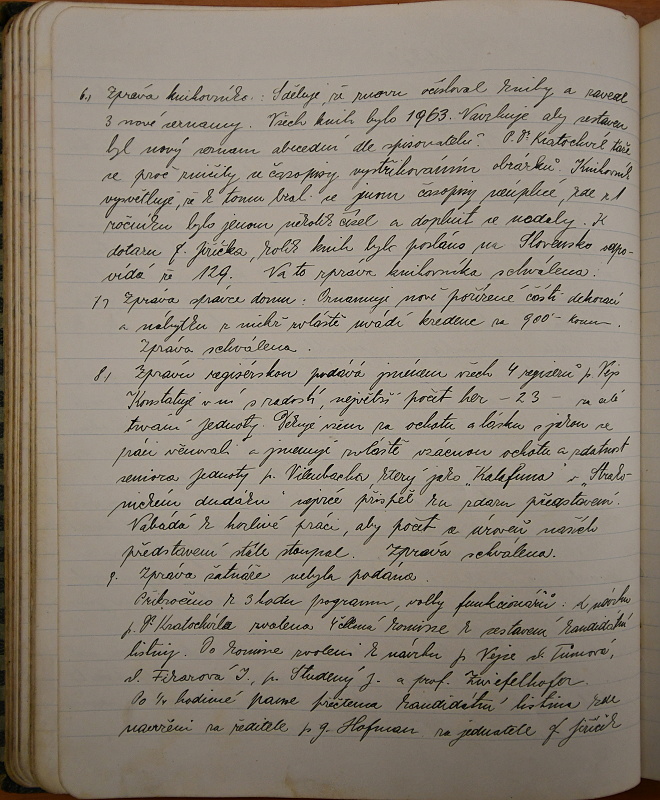 6., Zpráva knihovníka: Sděluje, že znovu očísloval knihy a zavedl
3 nové seznamy. Všech knih bylo 1963. Navrhuje aby sestaven
byl nový seznam abecední dle spisovatelů. P. Dr Kratochvíl táže
se proč ničily se časopisy vystřihováním obrázků. Knihovník
vysvětluje, že k tomu bral se jenom časopisy neúplné, kde z 1
ročníku bylo jenom několik čísel a doplnit se nedaly. K
dotazu p. Jiříčka, kolik knih bylo posláno na Slovensko odpo-
vídá že 129. Na to zpráva knihovníka schválena.
7., Zpráva správce domu: Oznamuje nově pořízené části dekorací
a nábytku z nichž zvláště uvádí kredenc za 900- korun.
Zpráva schválena.
8., Zprávu regisérskou podává jménem všech 4 regisérů p. Vejs
Konstatuje v ní s radostí, největší počet her - 23 - za celé
trvání jednoty. Děkuje všem za ochotu a lásku s jakou se
práci věnovali a jmenuje zvláště vzácnou ochotu a zdatnost
seniora jednoty p. Vilenbacha, který jako "Kalafuna" v "Strako-
nickém dudáku" nejvíce přispěl ku zdaru představení.
Nabádá k horlivé práci, aby počet a úroveň našich
představení stále stoupal. Zpráva schválena.
9. Zpráva šatnáře nebyla podána.
Přikročeno k 3 bodu programu, volby funkcionářů: k návrhu
p. Dr Kratochvíla zvolena 4členná komisse k sestavení kandidátní
listiny. Do komisse zvoleni k návrhu p. Vejse sl. Tůmová,
sl. Fikarová J., p. Studený J. a prof. Zwiefelhofer.
Po ¼ hodinné pause přečtena kandidátní listina kde
navrženi za ředitele p. g. Hofman za jednatele p. Jiříčk